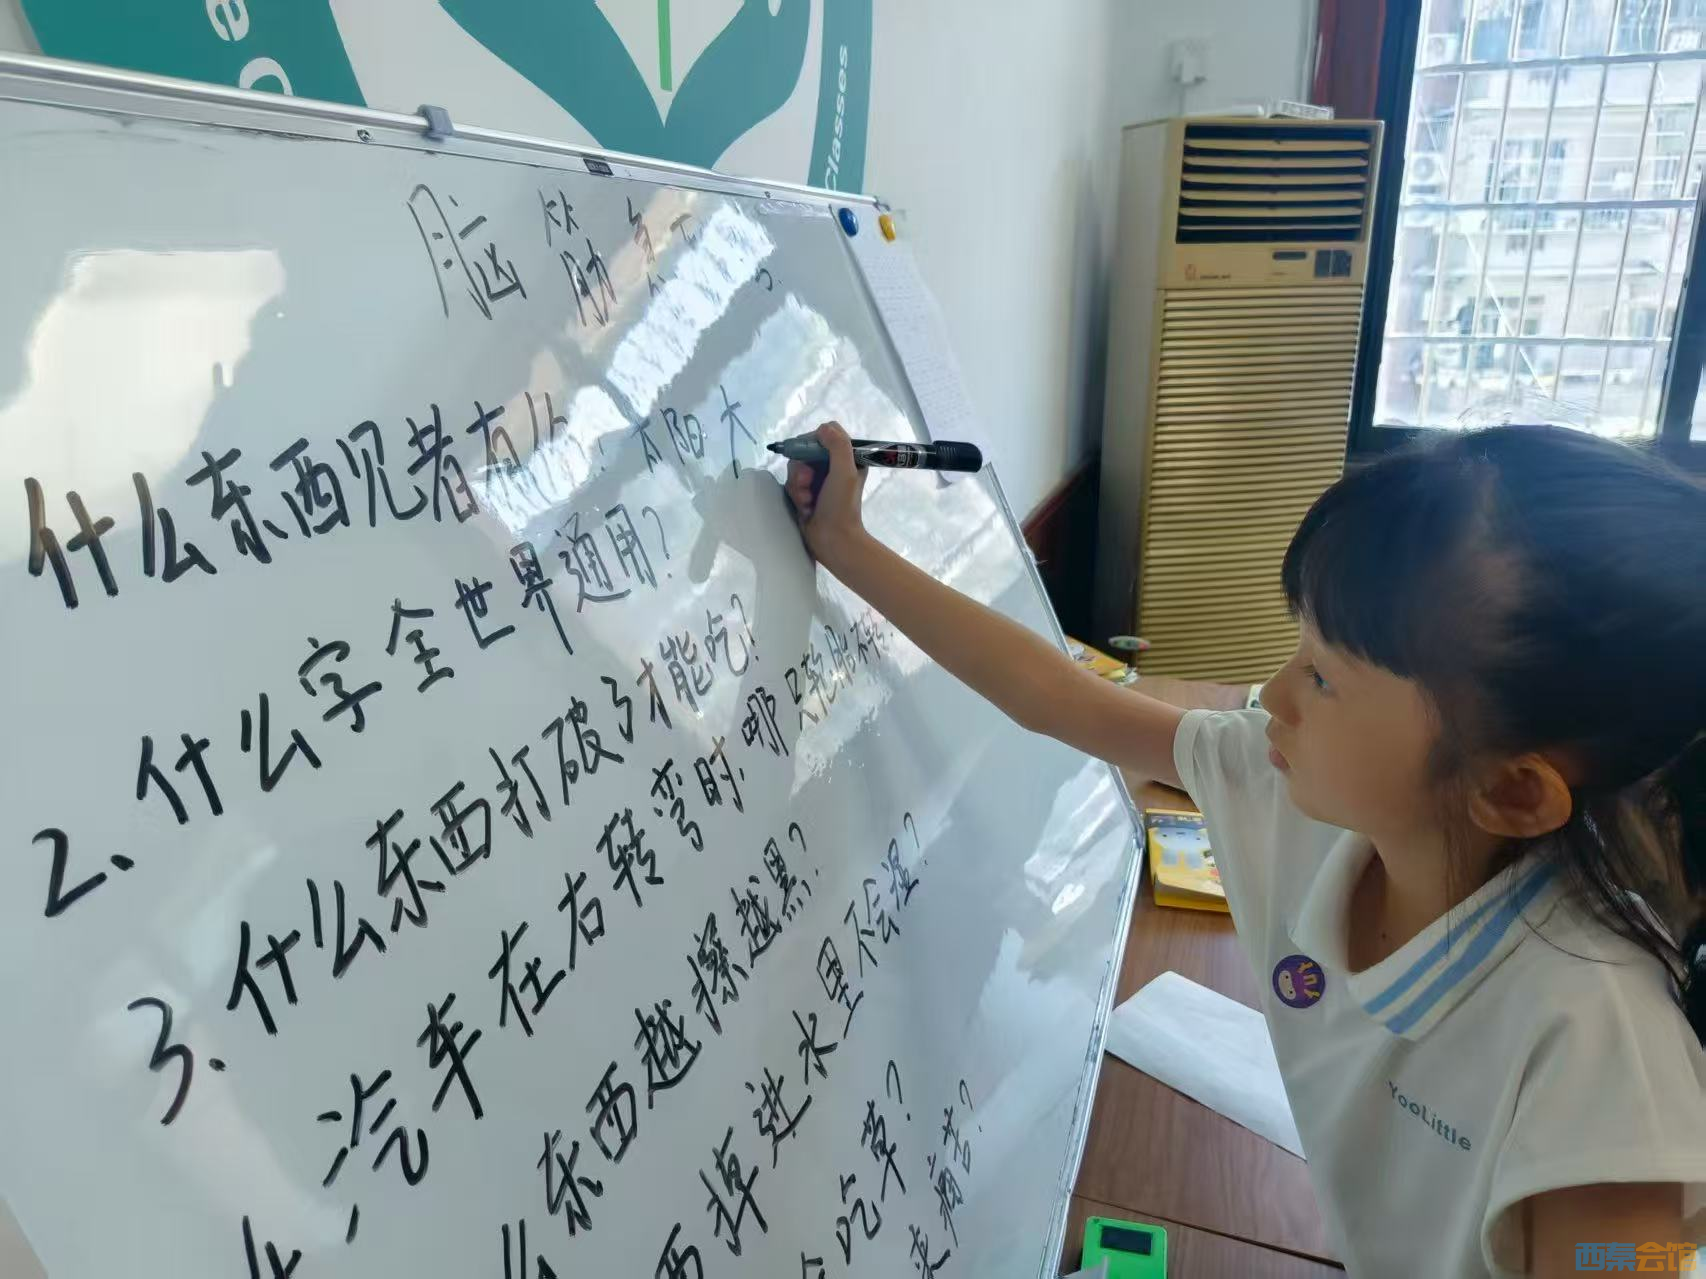 Classes
脑筋急
什么东西见者有份:太阳大
2、什么字全世界通用?
3、什么东西打破了才能吃?
汽车在右转弯时,哪只轮胎不转
东西越擦越黑?
西掉进水里不会湿?
吃草?
来痛苦?
YooLittle
西秦会馆